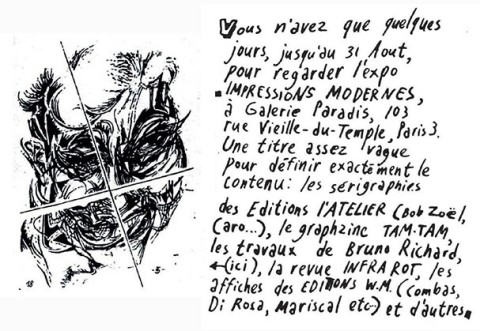 Vous n'avez que quelques
jours, jusqu'au 31 Aout,
pour regarder l'expo
.IMPRESSIONS MODERNES,
à Galerie Paradis, 103
rue Vieille-du-Temple, Paris 3.
Une titre assez vague
pour définir exactement le
contenu: les sérigraphies
des Editions l'ATELIER (Bob Zoël,
Caro...), le graphzinc TAM-TAM,
les travaux de Bruno Richard,
←(ici), la revue INFRAROT, les
affiches des EDITIONS W.M. (Combas,
Di Rosa, Mariscal etc.) et d'autres.
18
-5-